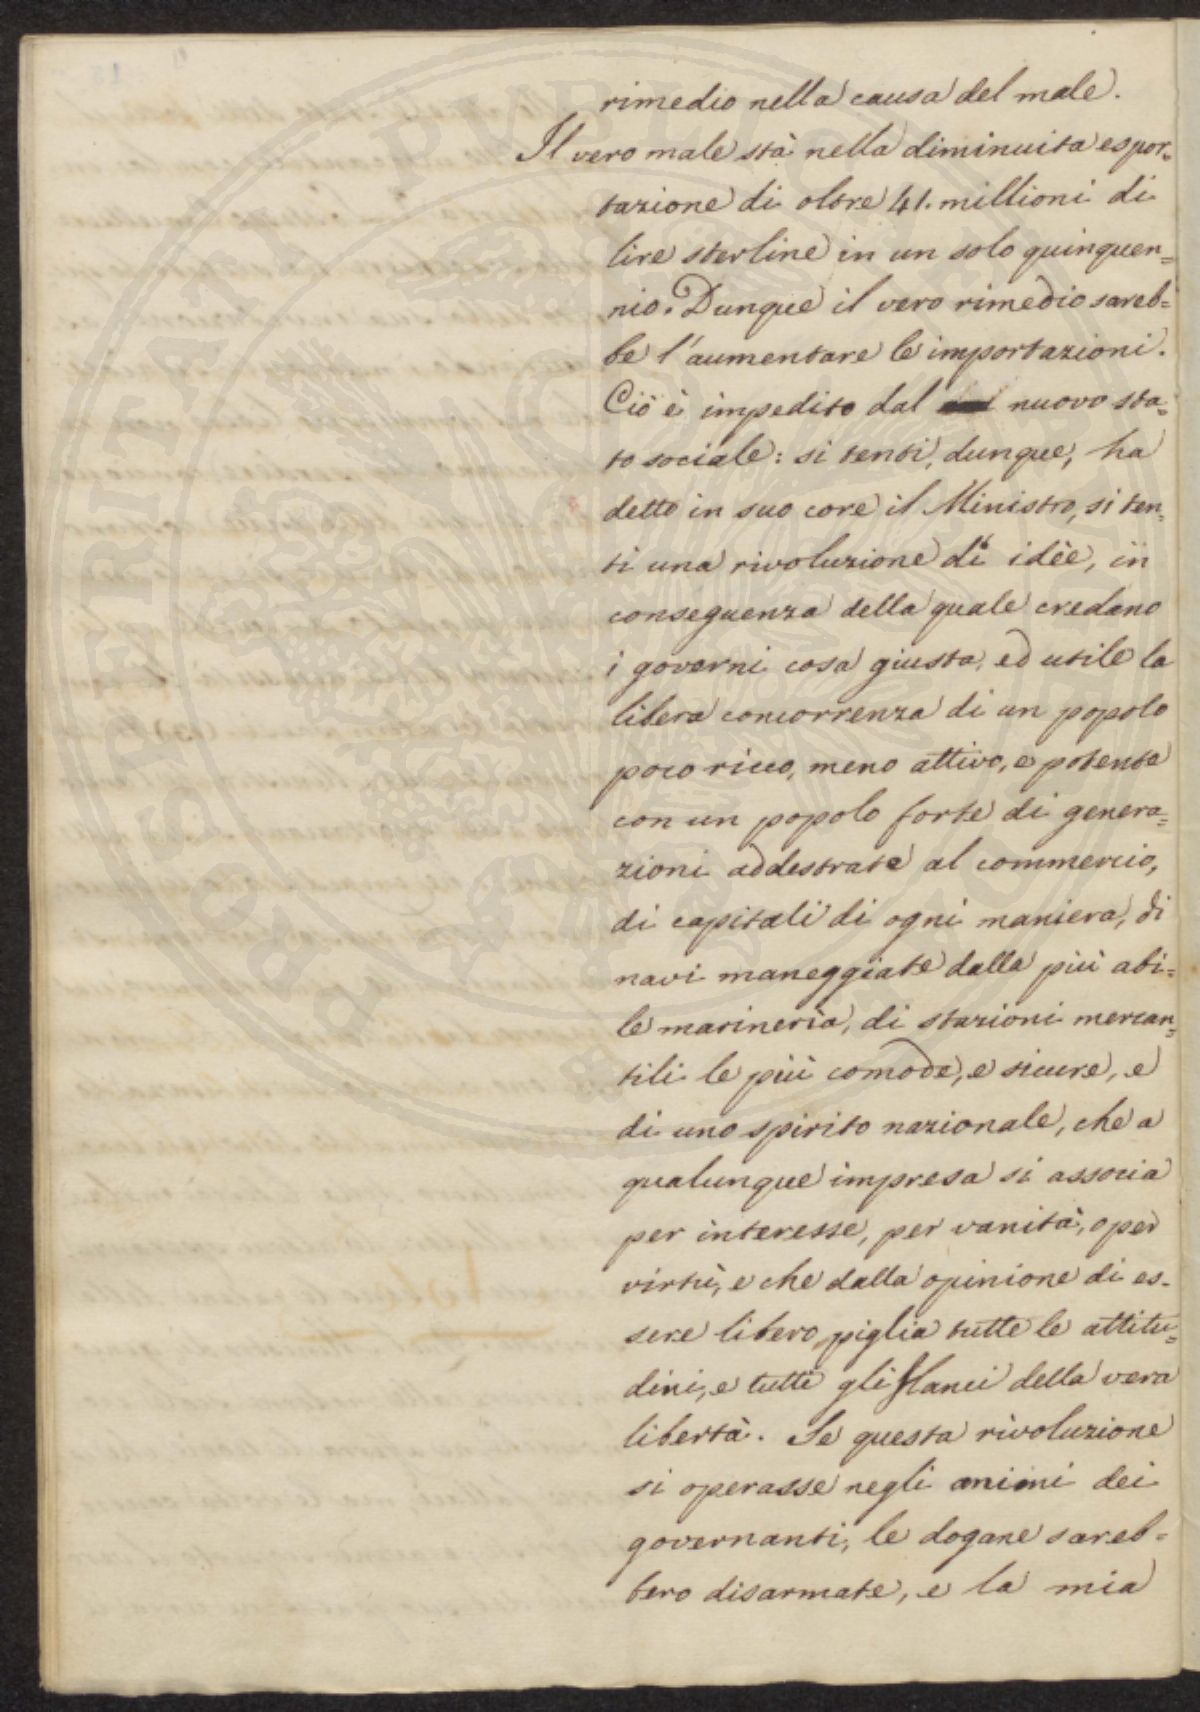 rimedio nella causa del male.
Il vero male stà nella diminuita espor=
tazione di oltre 41. millioni di
lire sterline in un solo quinquen=
nio. Dunque il vero rimedio sareb=
be l'aumentare le importazioni.
Ciò è impedito dal nuovo sta=
to sociale: si tenti, dunque, ha
detto in suo core il Ministro, si ten=
ti una rivoluzione di idèe, in
conseguenza della quale credano
i governi cosa giusta, ed utile la
libera concorrenza di un popolo
poco ricco, meno attivo, e potente
con un popolo forte di genera=
zioni addestrate al commercio,
di capitali di ogni maniera, di
navi maneggiate dalla più abi=
le marineria, di stazioni mercan=
tili le più comode, e sicure, e
di uno spirito nazionale, che a
qualunque impresa si associa
per interesse, per vanità, o per
virtù, e che dalla opinione di es=
sere libero piglia tutte le attitu=
dini, e tutti gli slanci della vera
libertà. Se questa rivoluzione
si operasse negli animi dei
governanti, le dogane sareb=
bero disarmate, e la mia
PROSPERITATI PVBLICAE